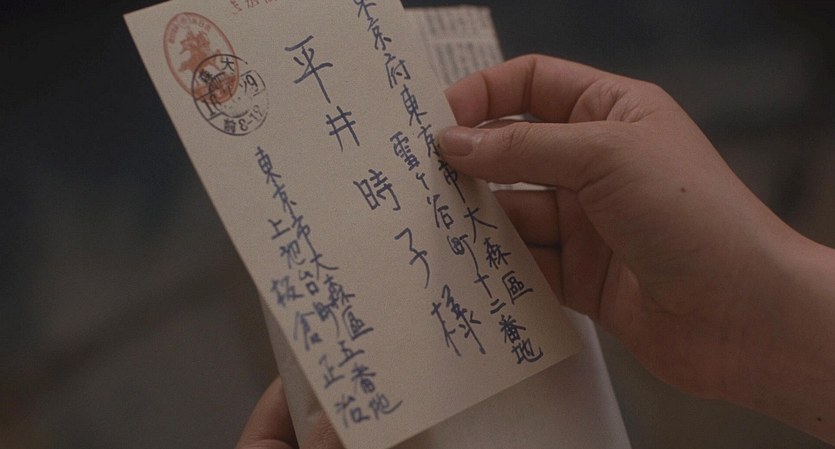 東京府東京市大森區
雪ヶ谷町十二番地
平井時子様
東京市大森區五番地
上池台町
板倉正治